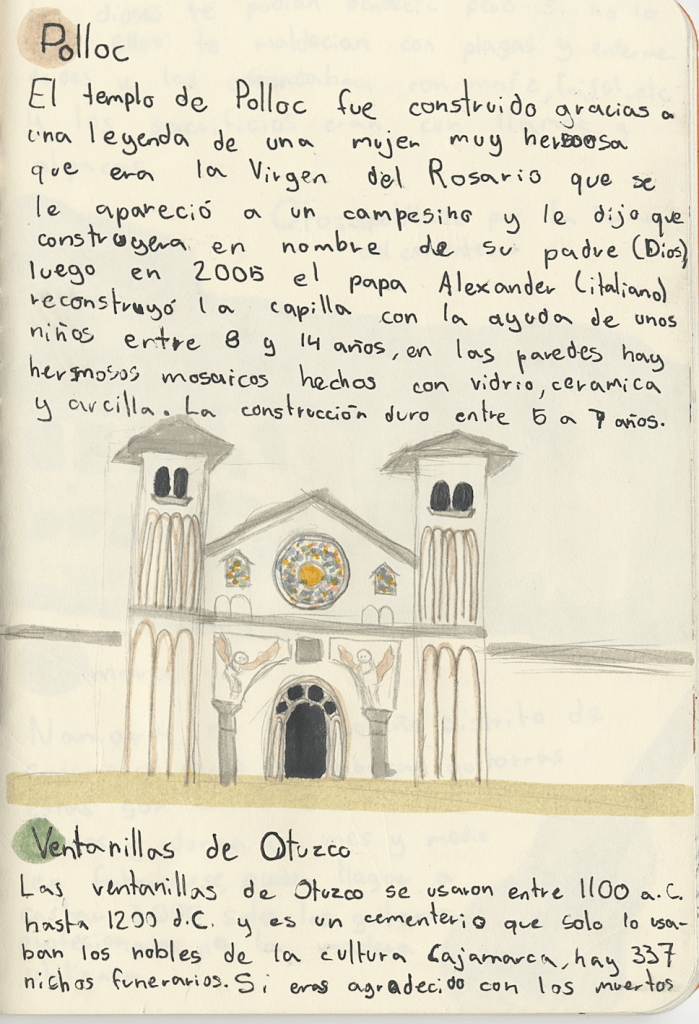 Polloc
El templo de Polloc fue construido gracias a
una leyenda de una mujer muy hermosa
que era la Virgen del Rosario que se
le apareció a un campesino y le dijo que
construyera en nombre de su padre (Dios)
luego en 2005 el papa Alexander (italiano)
reconstruyó la capilla con la ayuda de unos
niños entre 8 y 14 años, en las paredes hay
hermosos mosaicos hechos con vidrio, ceramica
y arcilla. La construcción duro entre 5 a 7 años.
Ventanillas de Otuzco
Las ventanillas de Otuzco se usaron entre 1100 a.C.
hasta 1200 d.C. y es un cementerio que solo lo usa-
ban los nobles de la cultura Cajamarca, hay 337
nichos funerarios. Si eras agradecido con los muertos